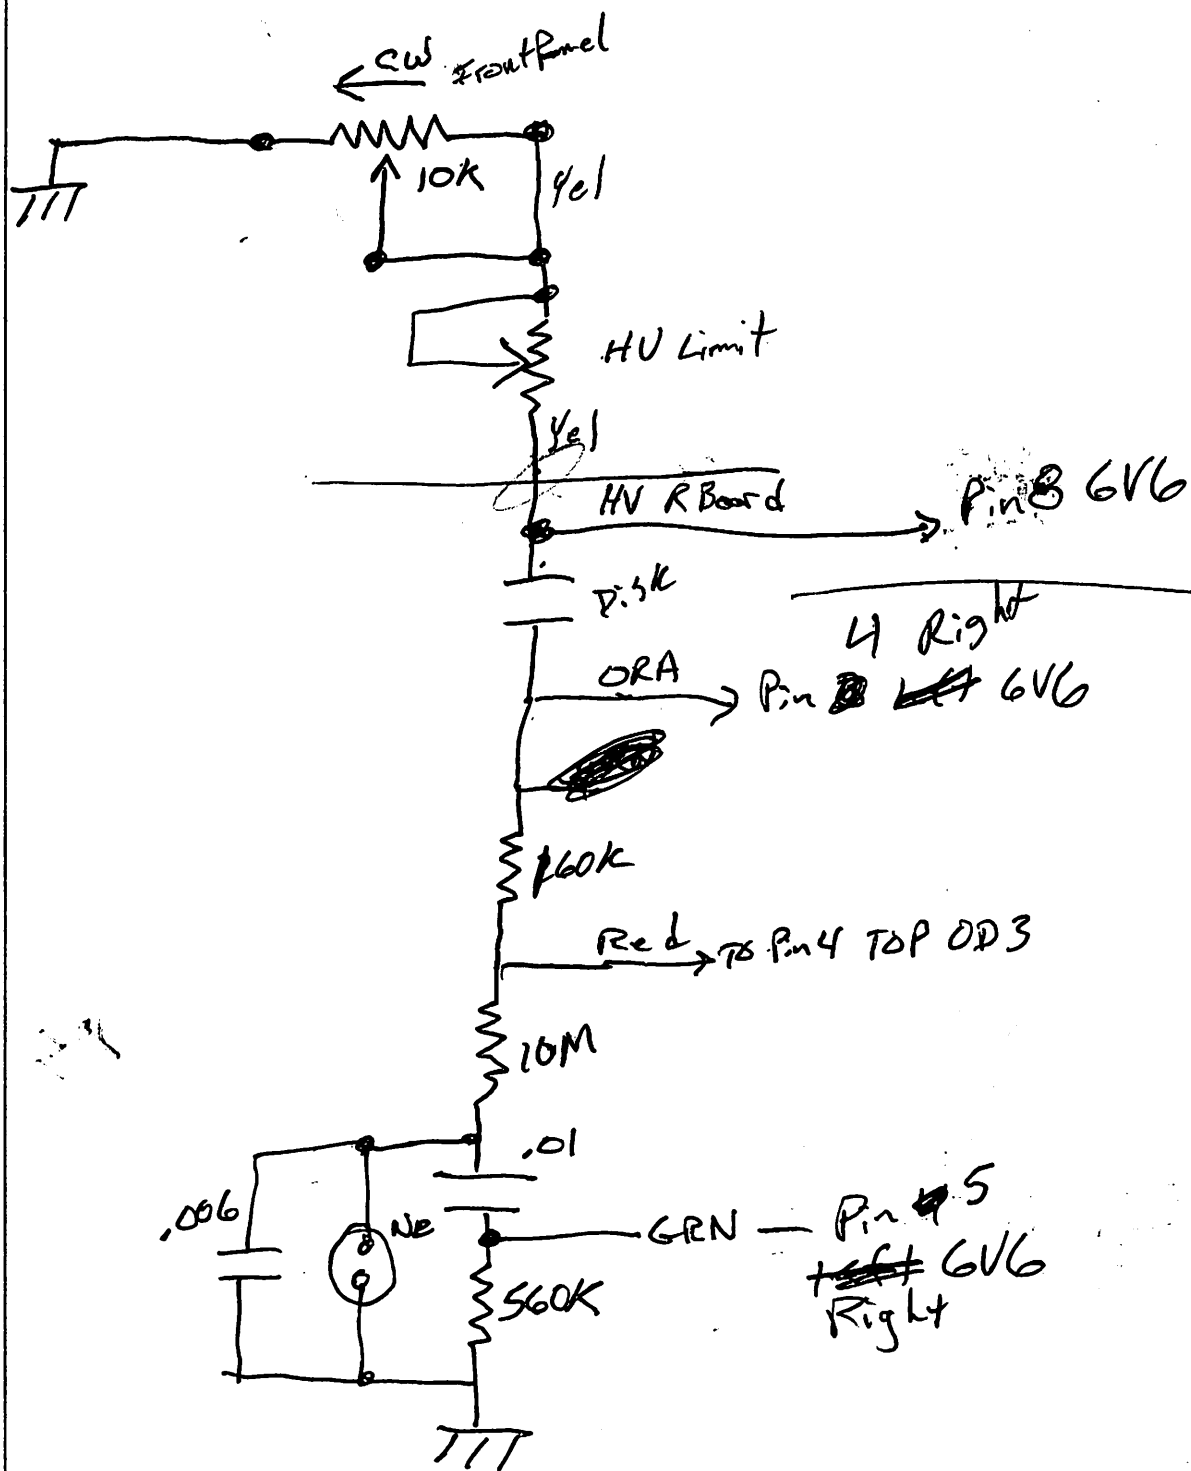 CW Frontpanel
10K
Yel
HV Limit
Yel
HV R Board
Pin 8 6V6
Disk
4 Right
ORA
Pin 6V6
60K
Red To Pin 4 TOP OD3
10M
.01
.006
NE
GRN — Pin 5
6V6
560K
Right